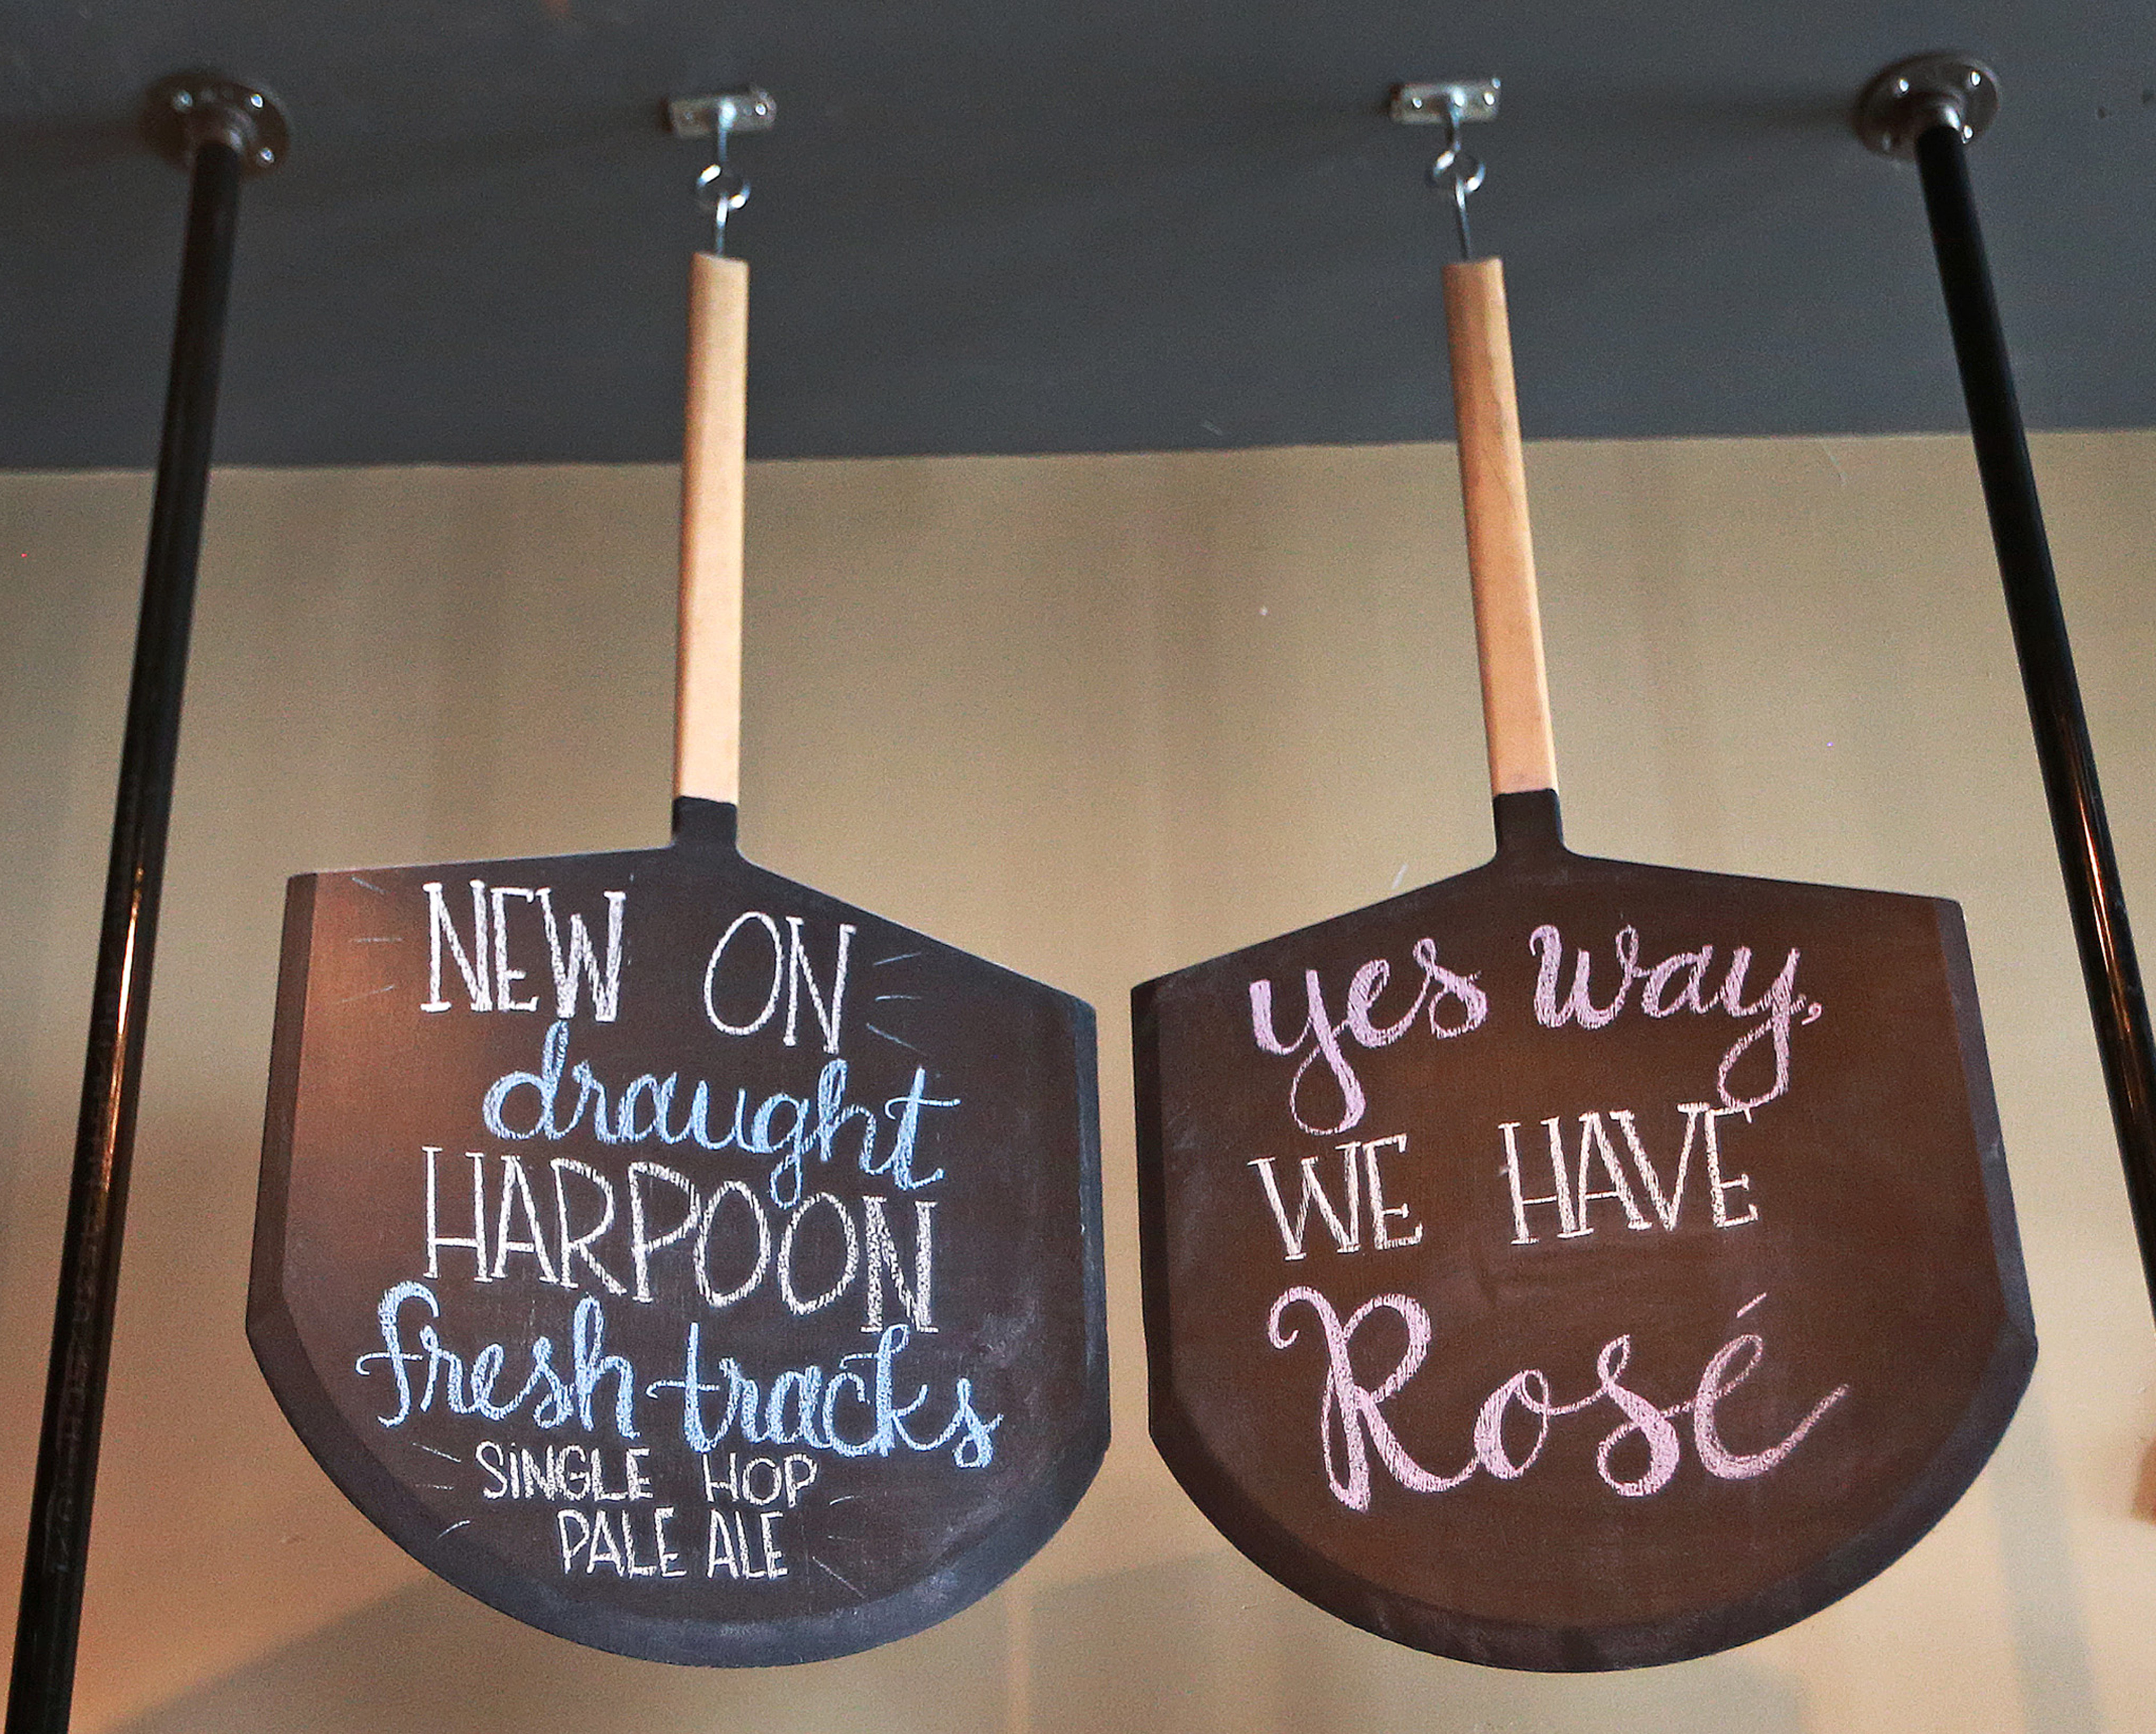 NEW ON
draught
HARPOON
fresh tracks
SiNGLE HOP
PALE ALE
yes way,
WE HAVE
Rosé